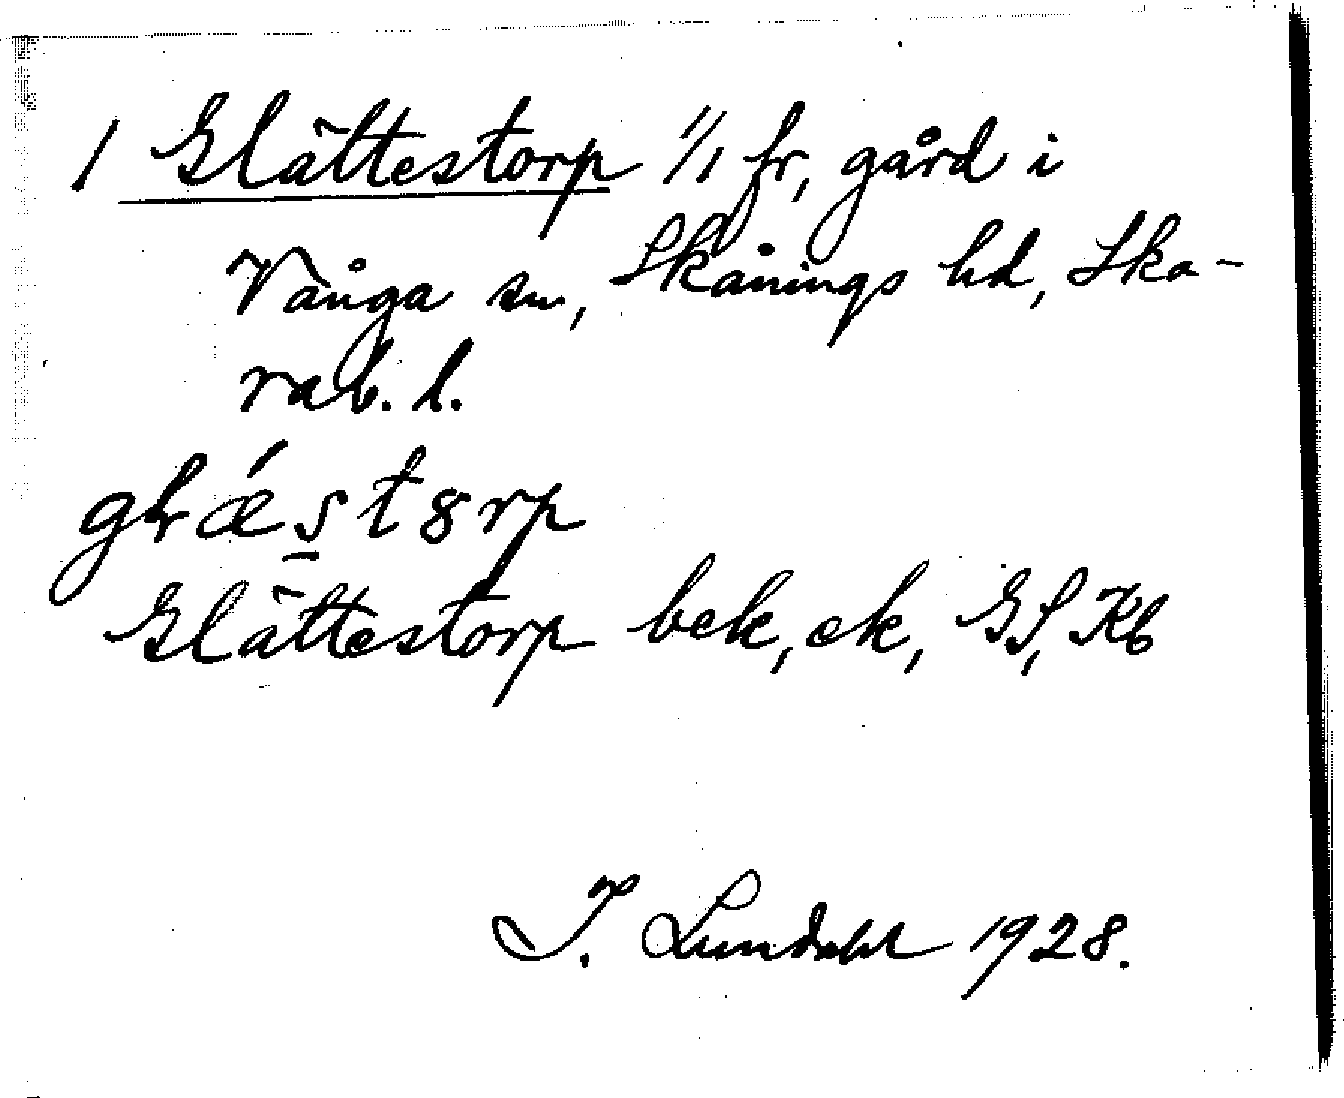 1 Glättestorp 1/1 fr, gård i
Vånga sn, Skånings hd, Ska-
rab. l.
Glättestorp bek, ek, GS, Kb
I. Lundahl 1928.